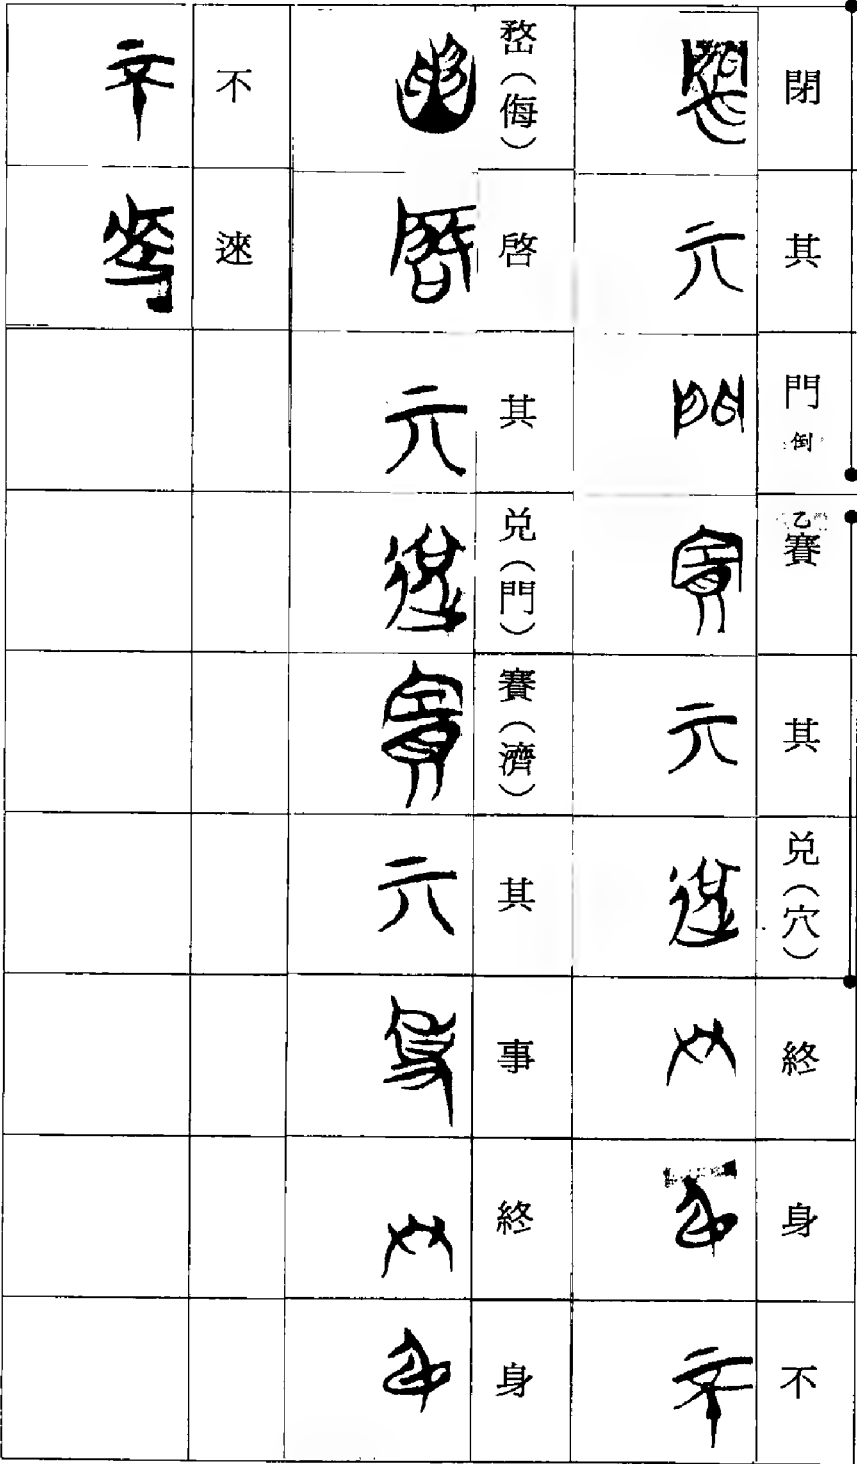 閉其門倒乙賽其兑(穴)終身不
嵍(侮)啓其兑(門)賽(濟)其事終身
不逨